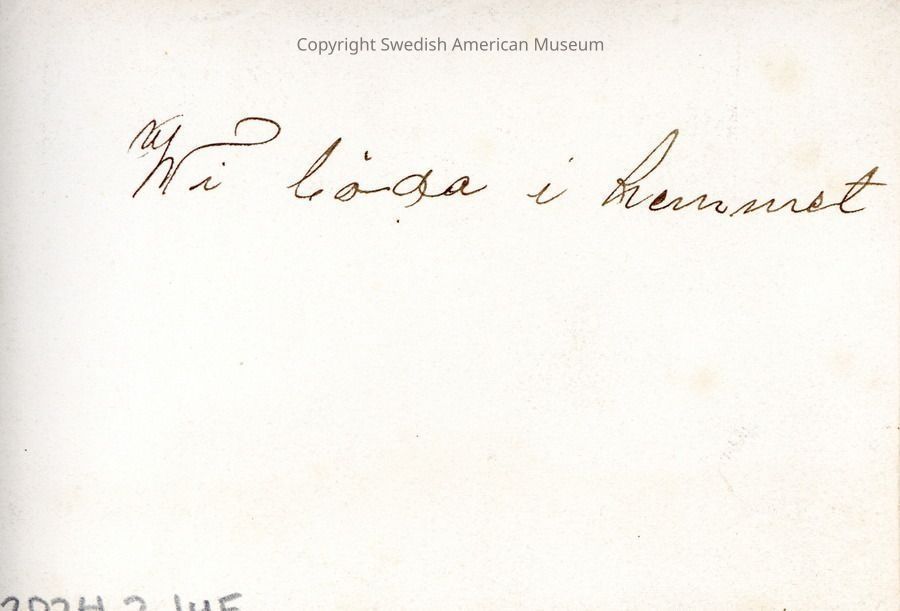 Copyright Swedish American Museum
Wi i hemmet